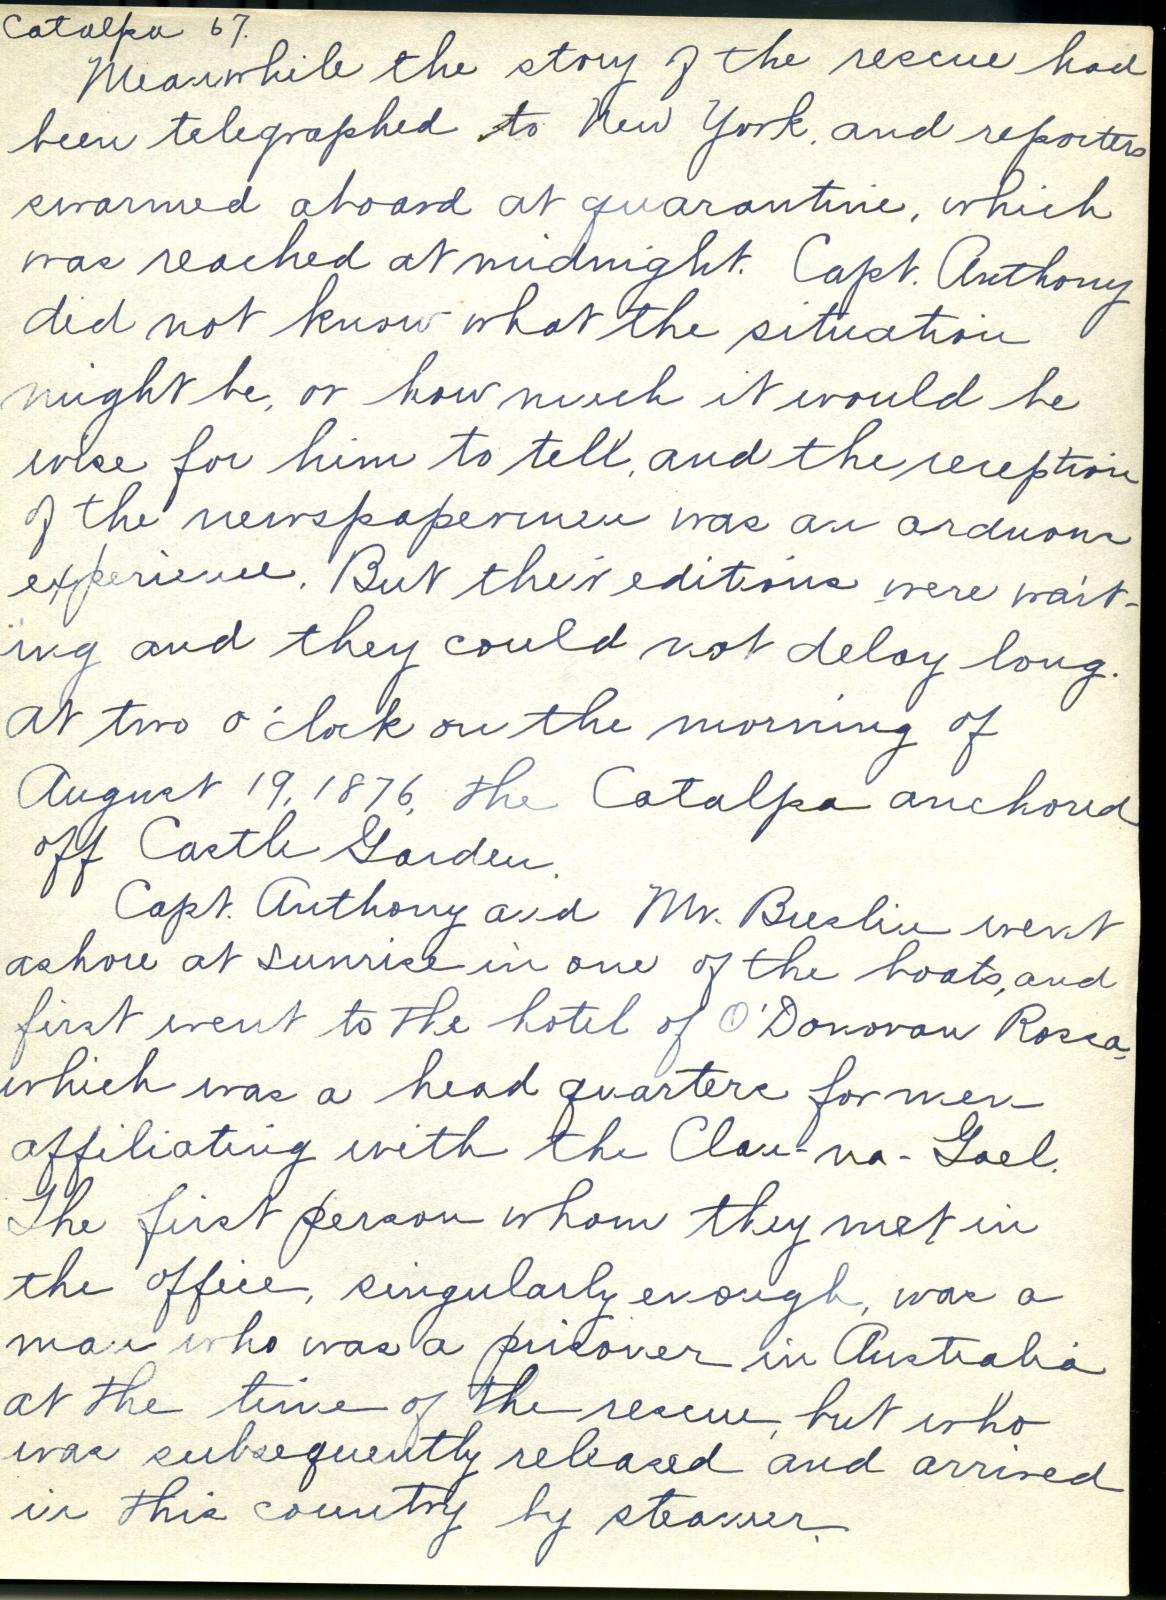 Catalpa 67.
Meanwhile the story of the rescue had
been telegraphed to New York, and reporters
swarmed aboard at quarantine, which
was reached at midnight. Capt. Anthony
did not know what the situation
might be, or how much it would be
wise for him to tell, and the reception
of the newspapermen was an arduous
experience. But their editions were wait-
ing and they could not delay long.
At two o'clock on the morning of
August 19, 1876, the Catalpa anchored
off Castle Garden.
Capt. Anthony and Mr. Breslin went
ashore at sunrise in one of the boats, and
first went to the hotel of O'Donovan Rossa,
which was a head quarters for men
affiliating with the Clan-na-Gael.
The first person whom they met in
the office, singularly enough, was a
man who was a prisoner in Australia
at the time of the rescue, but who
was subsequently released and arrived
in this country by steamer.